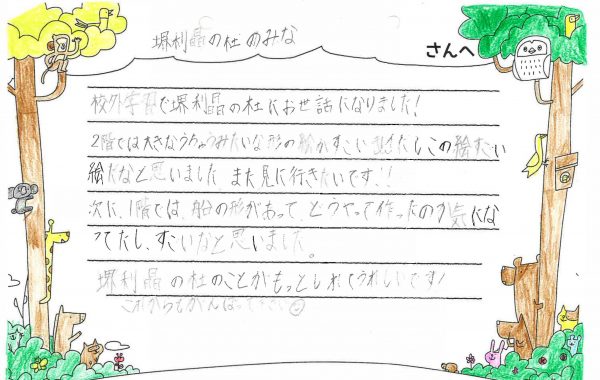 堺利晶の杜のみな
さんへ
校外学習で堺利晶の杜にお世話になりました!
2階では大きなうちゅうみたいな形の絵がすごい
絵だなと思いました。また見に行きたいです!!
次に、1階では、船の形があって、どうやって作ったのか気にな
ってたし、すごいなと思いました。
堺利晶の杜のことがもっとしれてうれしいです!
これからもがんばって下さい